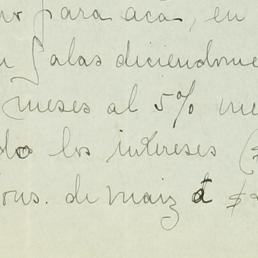 para acá, en
Salas diciendome
meses al 5%
do los intereses (
ons. de maiz á $